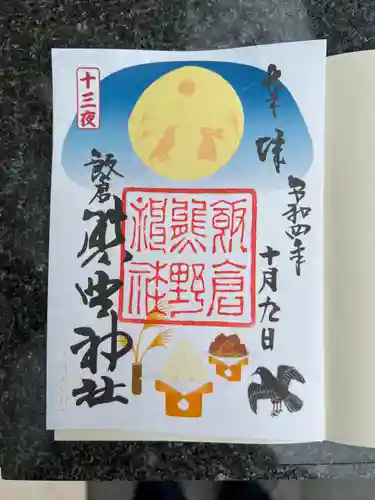 奉拝
令和四年
十月九日
十三夜
飯倉
熊野神社
飯倉
熊野
神社